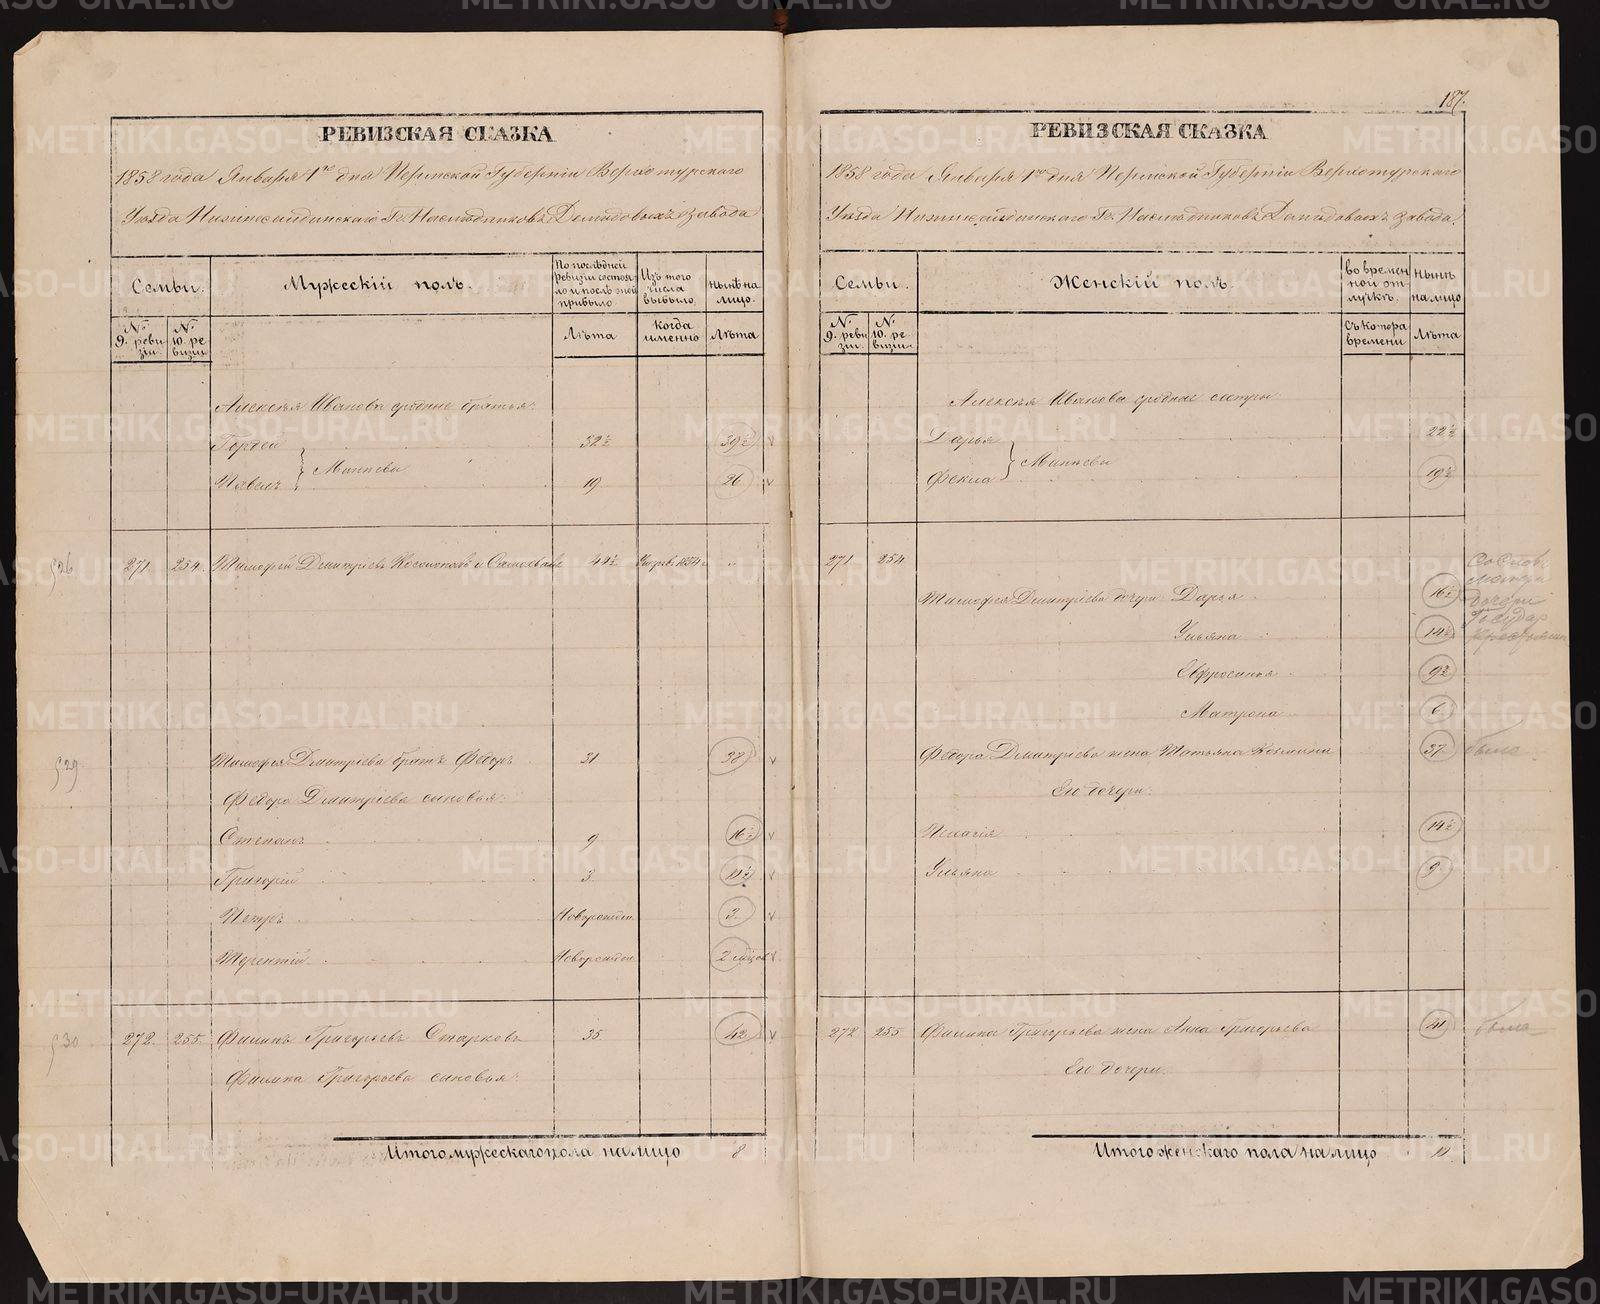 РЕВИЗСКАЯ СКАЗКА
1858 года Января 1го дня Пермской Губерніи Верхотурскаго
Уѣзда Нижнесалдинскаго Гг. Наслѣдниковъ Демидовыхъ завода
Семьи.
Мужескій полъ.
По послѣдней ревизіи состояло и послѣ оной прибыло
Изъ того числа выбыло.
Нынѣ на лицо.
№ 9. ревизіи.
№ 10. ревизіи.
Лѣта
Когда именно
Лѣта
Алексѣя Иванова сродные братья:
Гордей 32½ 39½
Павелъ 19 26
526 271. 254. Тимофей Дмитріевъ 44½
529 Тимофея Дмитріева братъ Федоръ 31 38
Федора Дмитріева сыновья:
Степанъ 9 16½
Григорій 3 11½
Петръ Новорожден. 3.
Терентій Новорожден. 2 мѣсяц.
530 272. 255. Филипъ Григорьевъ Старковъ 35. 42
Филипа Григорьева сыновья:
Итого мужескаго пола на лицо 8
187.
РЕВИЗСКАЯ СКАЗКА
1858 года Января 1го дня Пермской Губерніи Верхотурскаго
Уѣзда Нижнесалдинскаго Гг. Наслѣдниковъ Демидовыхъ завода.
Семьи.
Женскій полъ.
Во временной отлучкѣ.
Нынѣ на лицо
№ 9. ревизіи.
№ 10. ревизіи.
Съ котора времени
Лѣта
Алексѣя Иванова сродные сестры
Дарья 22½
Фекла 19½
271. 254
Тимофея Дмитріева дочери Дарья 16½
Ульяна 14½
Евфросинья 9½
Матрона 6
Федора Дмитріева жена Татьяна Козмина 37
Его дочери:
Пелагія 14½
Ульяна 9
272 255 Филипа Григорьева жена Анна Григорьева 41
Его дочери.
Итого женскаго пола на лицо 11
METRIKI.GASO-URAL.RU